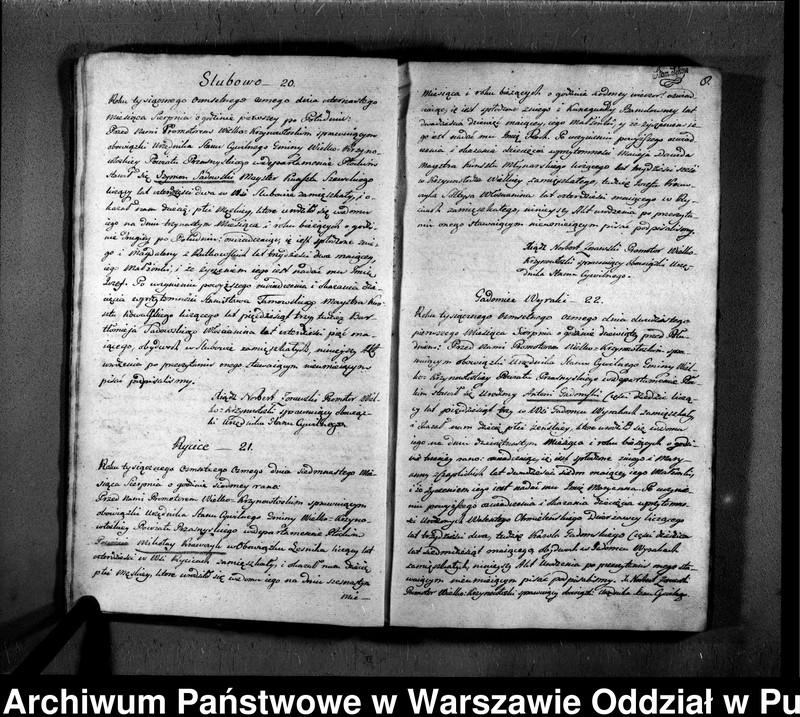 Slubowo 20.
Roku tysiącznego osmsetnego osmego dnia czternastego
Miesiąca Sierpnia o godzinie pierwszey po Południu:
Przed Nami Promotorem Wielko-Krzynowłoskim sprawuiącym
obowiązki Urzędnika Stanu Cywilnego Gminy Wielko-Krzyno-
włoskiey Powiatu Przasnyskiego w departamencie Płockim
Stawił się Szymon Sadowski Mayster
liczący lat czterdzieści dwa w Wsi Slubowie zamieszkały, i o-
kazał nam dziecię płci Męskiey, które urodziło się w domu
iego na dniu trzynastym Miesiąca i roku bieżących o godzi-
nie drugiey po Południu: oświadczaiąc, iż iest spłodzone z nie-
go i Magdaleny z lat trzydzieści dwa maiącey,
iego Małżonki; i że życzeniem iego iest nadać mu Imię
Jozef. Po uczynieniu powyższego oświadczenia i okazania dzie-
cięcia w przytomności Stanisława Maystra Kun-
sztu Kowalskiego liczącego lat pięćdziesiąt trzy tudzież Bar-
tłomieja Sadowskiego Włościanina lat czterdzieści pięć ma-
iącego, obydwóch w Slubowie zamieszkałych, ninieyszy Akt
urodzenia po przeczytaniu onego stawaiącym nieumieiącym
pisać podpisaliśmy.
Xiądz Norbert Promotor Wiel-
ko-Krzynowłoski sprawuiący obowiąz-
ki Urzędnika Stanu Cywilnego
Rycice 21.
Roku tysiącznego Osmsetnego Osmego Dnia Siedmnastego Mie-
siąca Sierpnia o godzinie siódmey rano:
Przed Nami Promotorem Wielko-Krzynowłoskim sprawuiącym
obowiązki Urzędnika Stanu Cywilnego Gminy Wielko-Krzyno-
włoskiey Powiatu Przasnyskiego w departamencie Płockim
Mikołay Krawczyk w Obowiązku Leśnika liczący lat
czterdzieści w Wsi Rycicach zamieszkały, i okazał nam dziecię
płci Męskiey, które urodziło się w domu iego na dniu szesnastym
Mie-
miesiąca i roku bieżących o godzinie siódmey wieczor: oświad-
czaiąc, iż iest spłodzone z niego i Kunegundy lat
dwadzieścia dziewięć maiącey, iego Małżonki; y że życzeniem ie-
go iest nadać mu Imię Roch. Po uczynieniu powyższego oświad-
czenia i okazania dziecięcia w przytomności
Maystra Kunsztu Młynarskiego liczącego lat trzydzieści sześć
w Krzynowłodze Wielkiey zamieszkałego, tudzież Józefa Kraw-
czyka Włościanina lat czterdzieści maiącego w Ry-
cicach zamieszkałego, ninieyszy Akt urodzenia po przeczyta-
niu onego stawaiącym nieumieiącym pisać podpisaliśmy.
Xiądz Norbert Promotor Wielko-
Krzynowłoski sprawuiący obowiązki Urzę-
dnika Stanu Cywilnego.
Gadomiec Wyraki 22.
Roku tysiącznego Osmsetnego osmego dnia dwudziestego
pierwszego Miesiąca Sierpnia o godzinie dziewiątey przed Połu-
dniem: Przed Nami Promotorem Wielko-Krzynowłoskim spra-
wuiącym obowiązki Urzędnika Stanu Cywilnego Gminy Wiel-
ko-Krzynowłoskiey Powiatu Przasnyskiego w departamencie Płoc-
kim stawił się Urodzony Antoni Części dziedzic liczą-
cy lat pięćdziesiąt trzy w Wsi Gadomcu Wyrakach zamieszkały
i okazał nam dziecię płci żeńskiey, które urodziło się w domu
iego na dniu dziewiętnastym Miesiąca i roku bieżących o godzi-
nie rano: oświadczaiąc, iż iest spłodzone z niego i Mary-
anny lat dwadzieścia siedm maiącey iego Małżonki,
i że życzeniem iego iest nadać mu Imię Maryanna. Po uczynie-
niu powyższego oświadczenia i okazania dziecięcia w przytomno-
ści Urodzonych Walentego Chmieleńskiego Dzierżawcy liczącego
lat trzydzieści dwa, tudzież Karola Gadomskiego Części Dziedzica
lat siedmdziesiąt maiącego obydwóch w Gadomcu Wyrakach
zamieszkałych, ninieyszy Akt Urodzenia po przeczytaniu onego sta-
waiącym nieumieiącym pisać podpisaliśmy. X. Norbert
Promotor Wielko-Krzynowłoski sprawuiący obowiązki Urzędnika Stanu Cywilnego.
Archiwum Państwowe w Warszawie Oddział w Pu